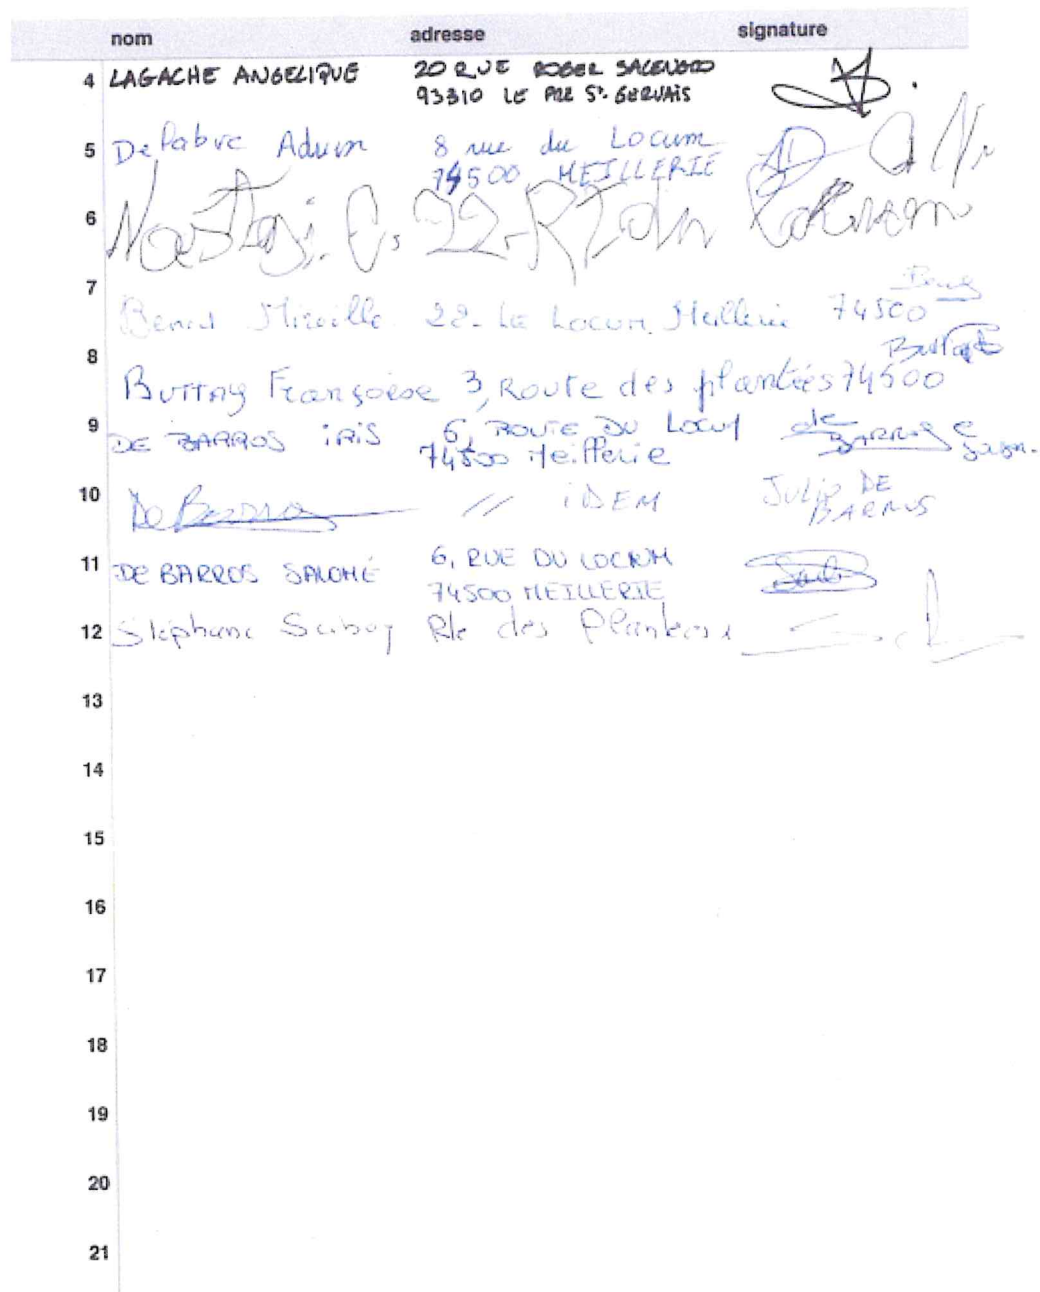 nom adresse signature
4 LAGACHE ANGELIQUE 20 RUE ROGER SALENGRO
93310 LE PRE St. GERVAIS
5 Delabre 8 rue du Locum
74500 MEILLERIE AD
6 C. 22.
7 Mireille 22- Le Locum Meillerie 74500
8 BUTTAY Françoise 3, Route des plantées 74500
9 DE BARROS iRiS 6, ROUTE DU LOCUM de
74500 Meillerie BARROS
10 De Barros // iDEM Julio DE
BARROS
11 DE BARROS SALOMÉ 6, RUE DU LOCUM
74500 MEILLERIE
12 Stephane Rte des
13
14
15
16
17
18
19
20
21